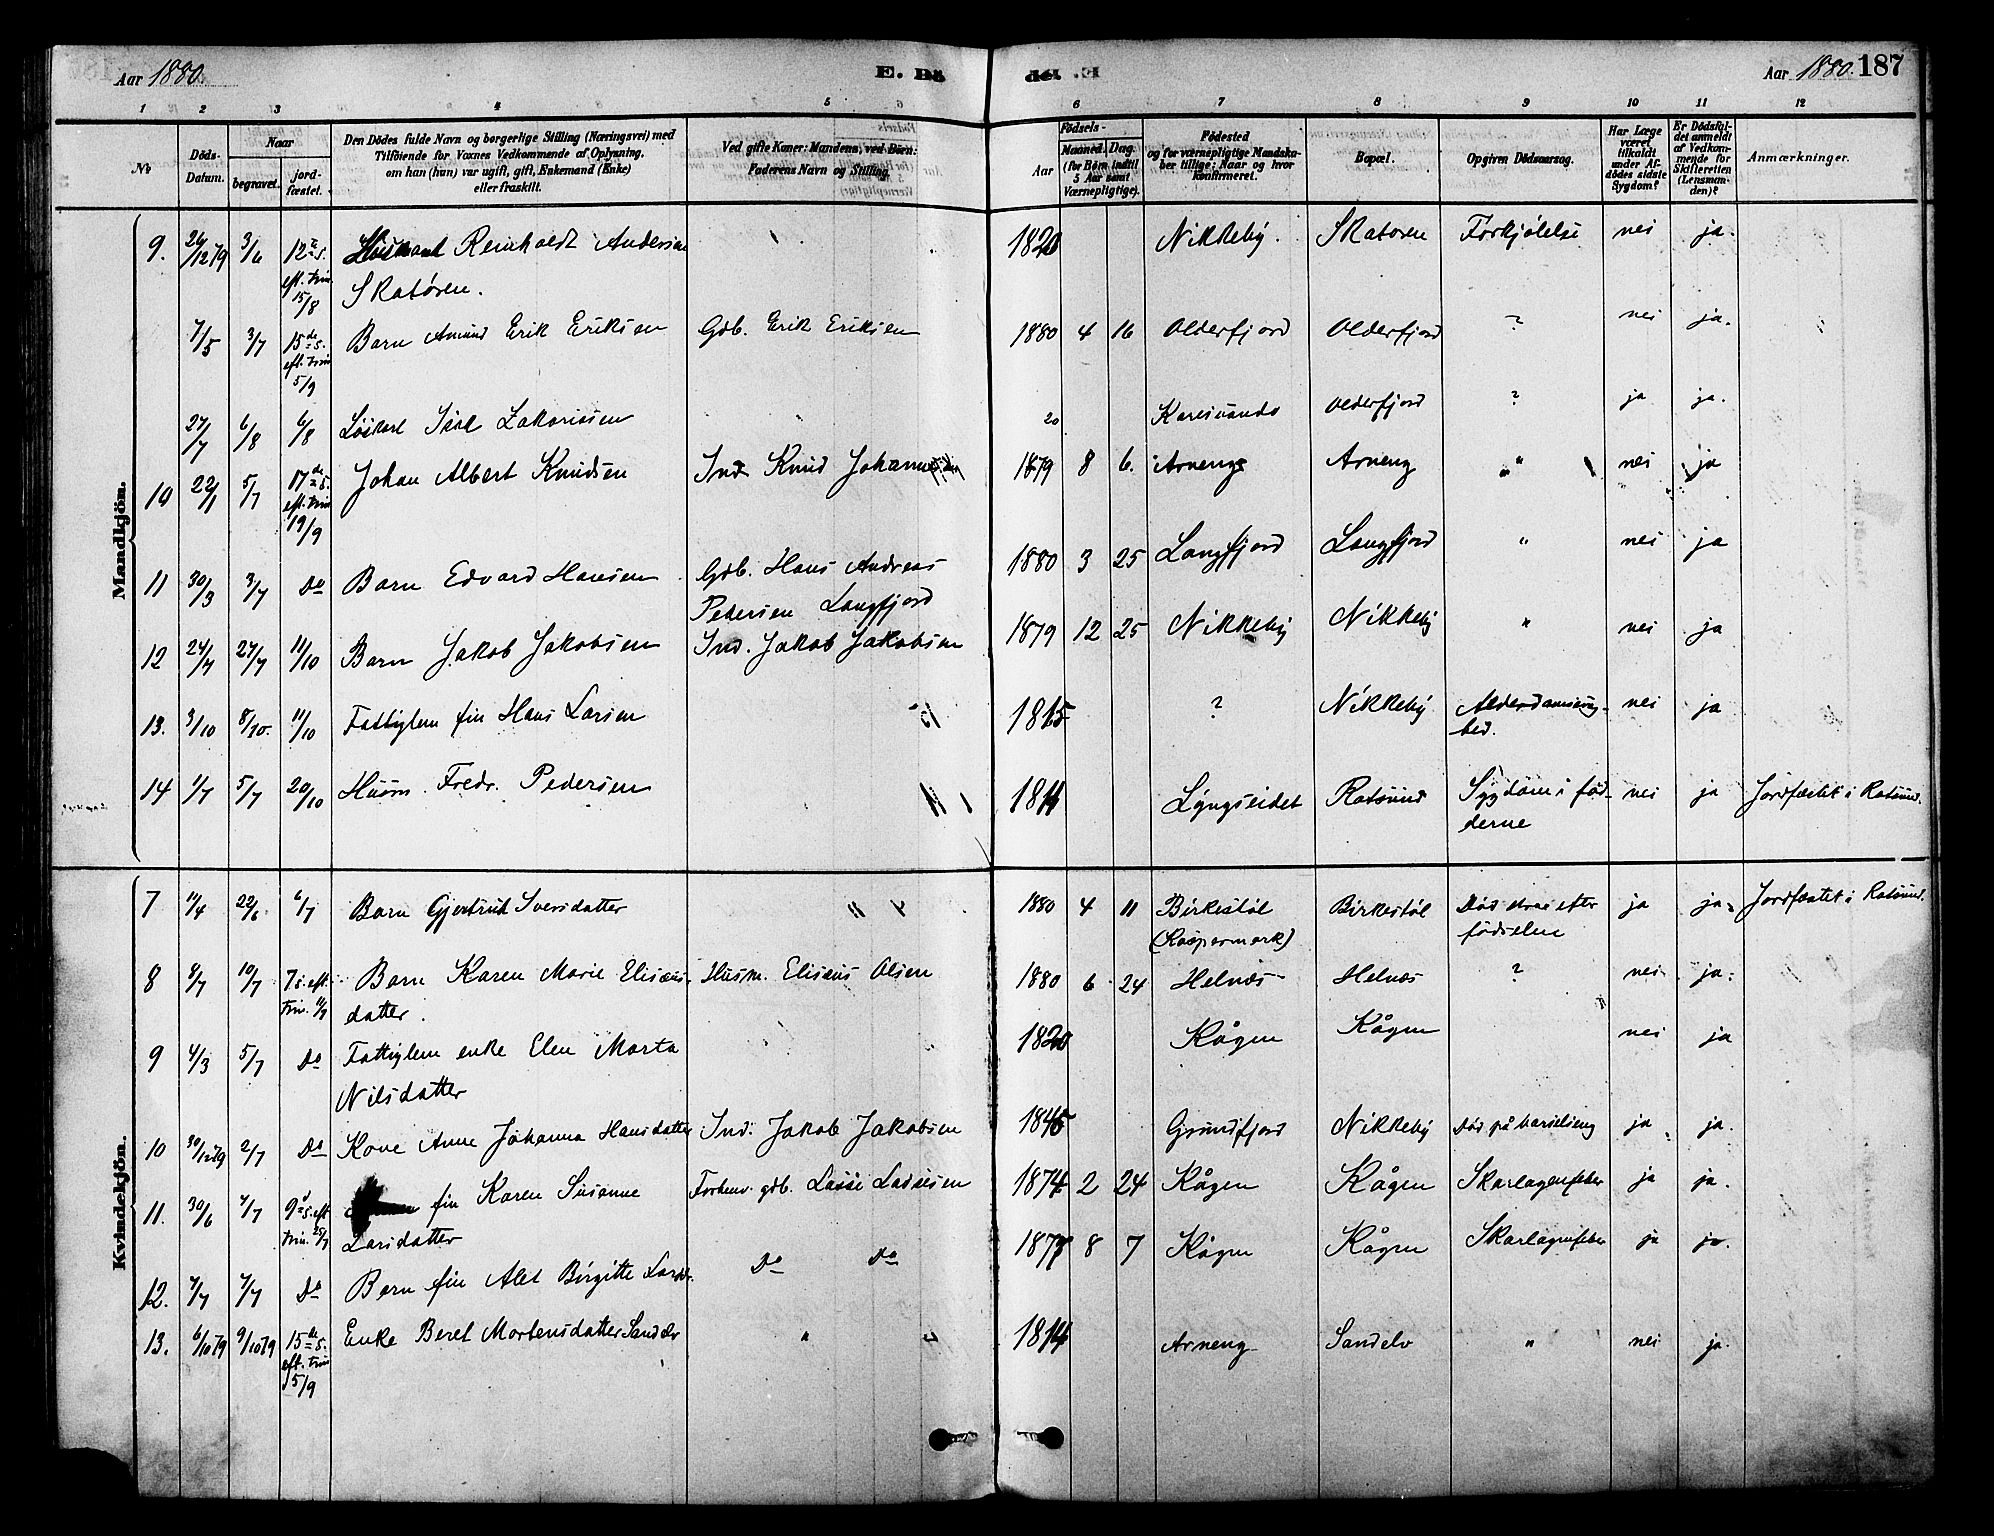 Aar 1880.
E. Dö
de. E.
Aar 1880. 187
1 2 3 4 5 6 7 8 9 10 11 12
No
Døds-Datum.
Naar
begravet.
jordfæstet.
Den Dödes fulde Navn og borgerlige Stilling (Næringsvei) med
Tilföiende for Voxnes Vedkommende af Oplysning,
om han (hun) var ugift, gift, Enkemand (Enke)
eller fraskilt.
Ved gifte Koner: Mandens, ved Börn:
Faderens Navn og Stilling.
Fødsels-
Aar
Maaned. Dag.
(for Børn indtil
5 Aar samt
Værnepligtige).
Födested
og for værnepligtige Mandska-
ber tillige: Naar og hvor
konfirmeret.
Bopæl.
Opgiven Dödsaarsag.
Har Læge
været
tilkaldt
under Af-
dödes sidste
Sygdom?
Er Dödsfal-
det anmeldt
af Vedkom-
mende for
Skifteretten
(Lensman-
den)?
Anmærkninger.
Mandkjön.
9. 26/12 79 3/6 12te s. eft. trin 15/8 Reinholdt Andersen 1820 Nikkeby. Skatøren Forkjølelse nei ja.
Skatøren.
7/5 3/7 15de s. eft. trin 5/9 Barn Amund Erik Eriksen Gdb. Erik Eriksen 1880 4 16 Olderfjord Olderfjord ? nei ja.
27/7 6/8 6/8 Løskarl Isak Zakariasen 20 Karesuando Olderfjord ? ja ja.
10 22/1 5/7 17de s. eft. trin 19/9 Johan Albert Knudsen Ind. Knud Johannesen 1879 8 6. Arneng Arneng " nei ja
11 30/3 3/7 Do Barn Edvard Hansen Gdb. Hans Andreas 1880 3 25 Langfjord Langfjord " nei ja
Pedersen Langfjord
12 24/7 27/7 11/10 Barn Jakob Jakobsen Ind. Jakob Jakobsen 1879 12 25 Nikkeby Nikkeby " nei ja
13. 3/10 8/10. 11/10 Fattiglem fin Hans Larsen 15 1815 ? Nikkeby Alderdomssvag- nei ja
hed.
14 1/7 5/7 20/10 Husm. Fredr. Pedersen 11 1811 Lyngseidet Rotsund Sygdom i fød- nei ja Jordfæstet i Rotsund.
derne
Kvindekjön.
7 11/4 22/6 6/7 Barn Gjertrud Iversdatter " " 1880 4 11 Birkestøl Birkestøl Død strax efter ja ja. Jordfæstet i Rotsund.
(Kaspermark) fødselen
8 8/7 10/7 7 s. eft. trin. 11/7 Barn Karen Marie Elisæus- Husm. Elisæus Olsen 1880 6 24 Helnæs Helnæs ? nei ja.
datter.
9 4/3 5/7 Do Fattiglem enke Elen Marta 1820 Kågen Kågen nei ja
Nilsdatter
10 30/12 79 2/7 Do Kone Anne Johanna Hansdatter Ind. Jakob Jakobsen 1845 Grundfjord Nikkeby Død på barselseng ja ja.
11. 30/6 7/7 9de s. eft. trin. 25/7 fin Karen Susanne Forhenv. gdb. Lasse Lassesen 1874 2 24 Kågen Kågen Skarlagensfeber ja ja.
Larsdatter
12. 7/7 7/7 Do Barn fin Alet Birgitte Larsdr. Do Do 1877 8 7 Kågen Kågen Skarlagensfeber ja ja.
13. 6/10 79 9/10 79 15de s. eft. trin 5/9 Enke Beret Mortensdatter Sandelv " " 1814 Arneng Sandelv " nei ja.